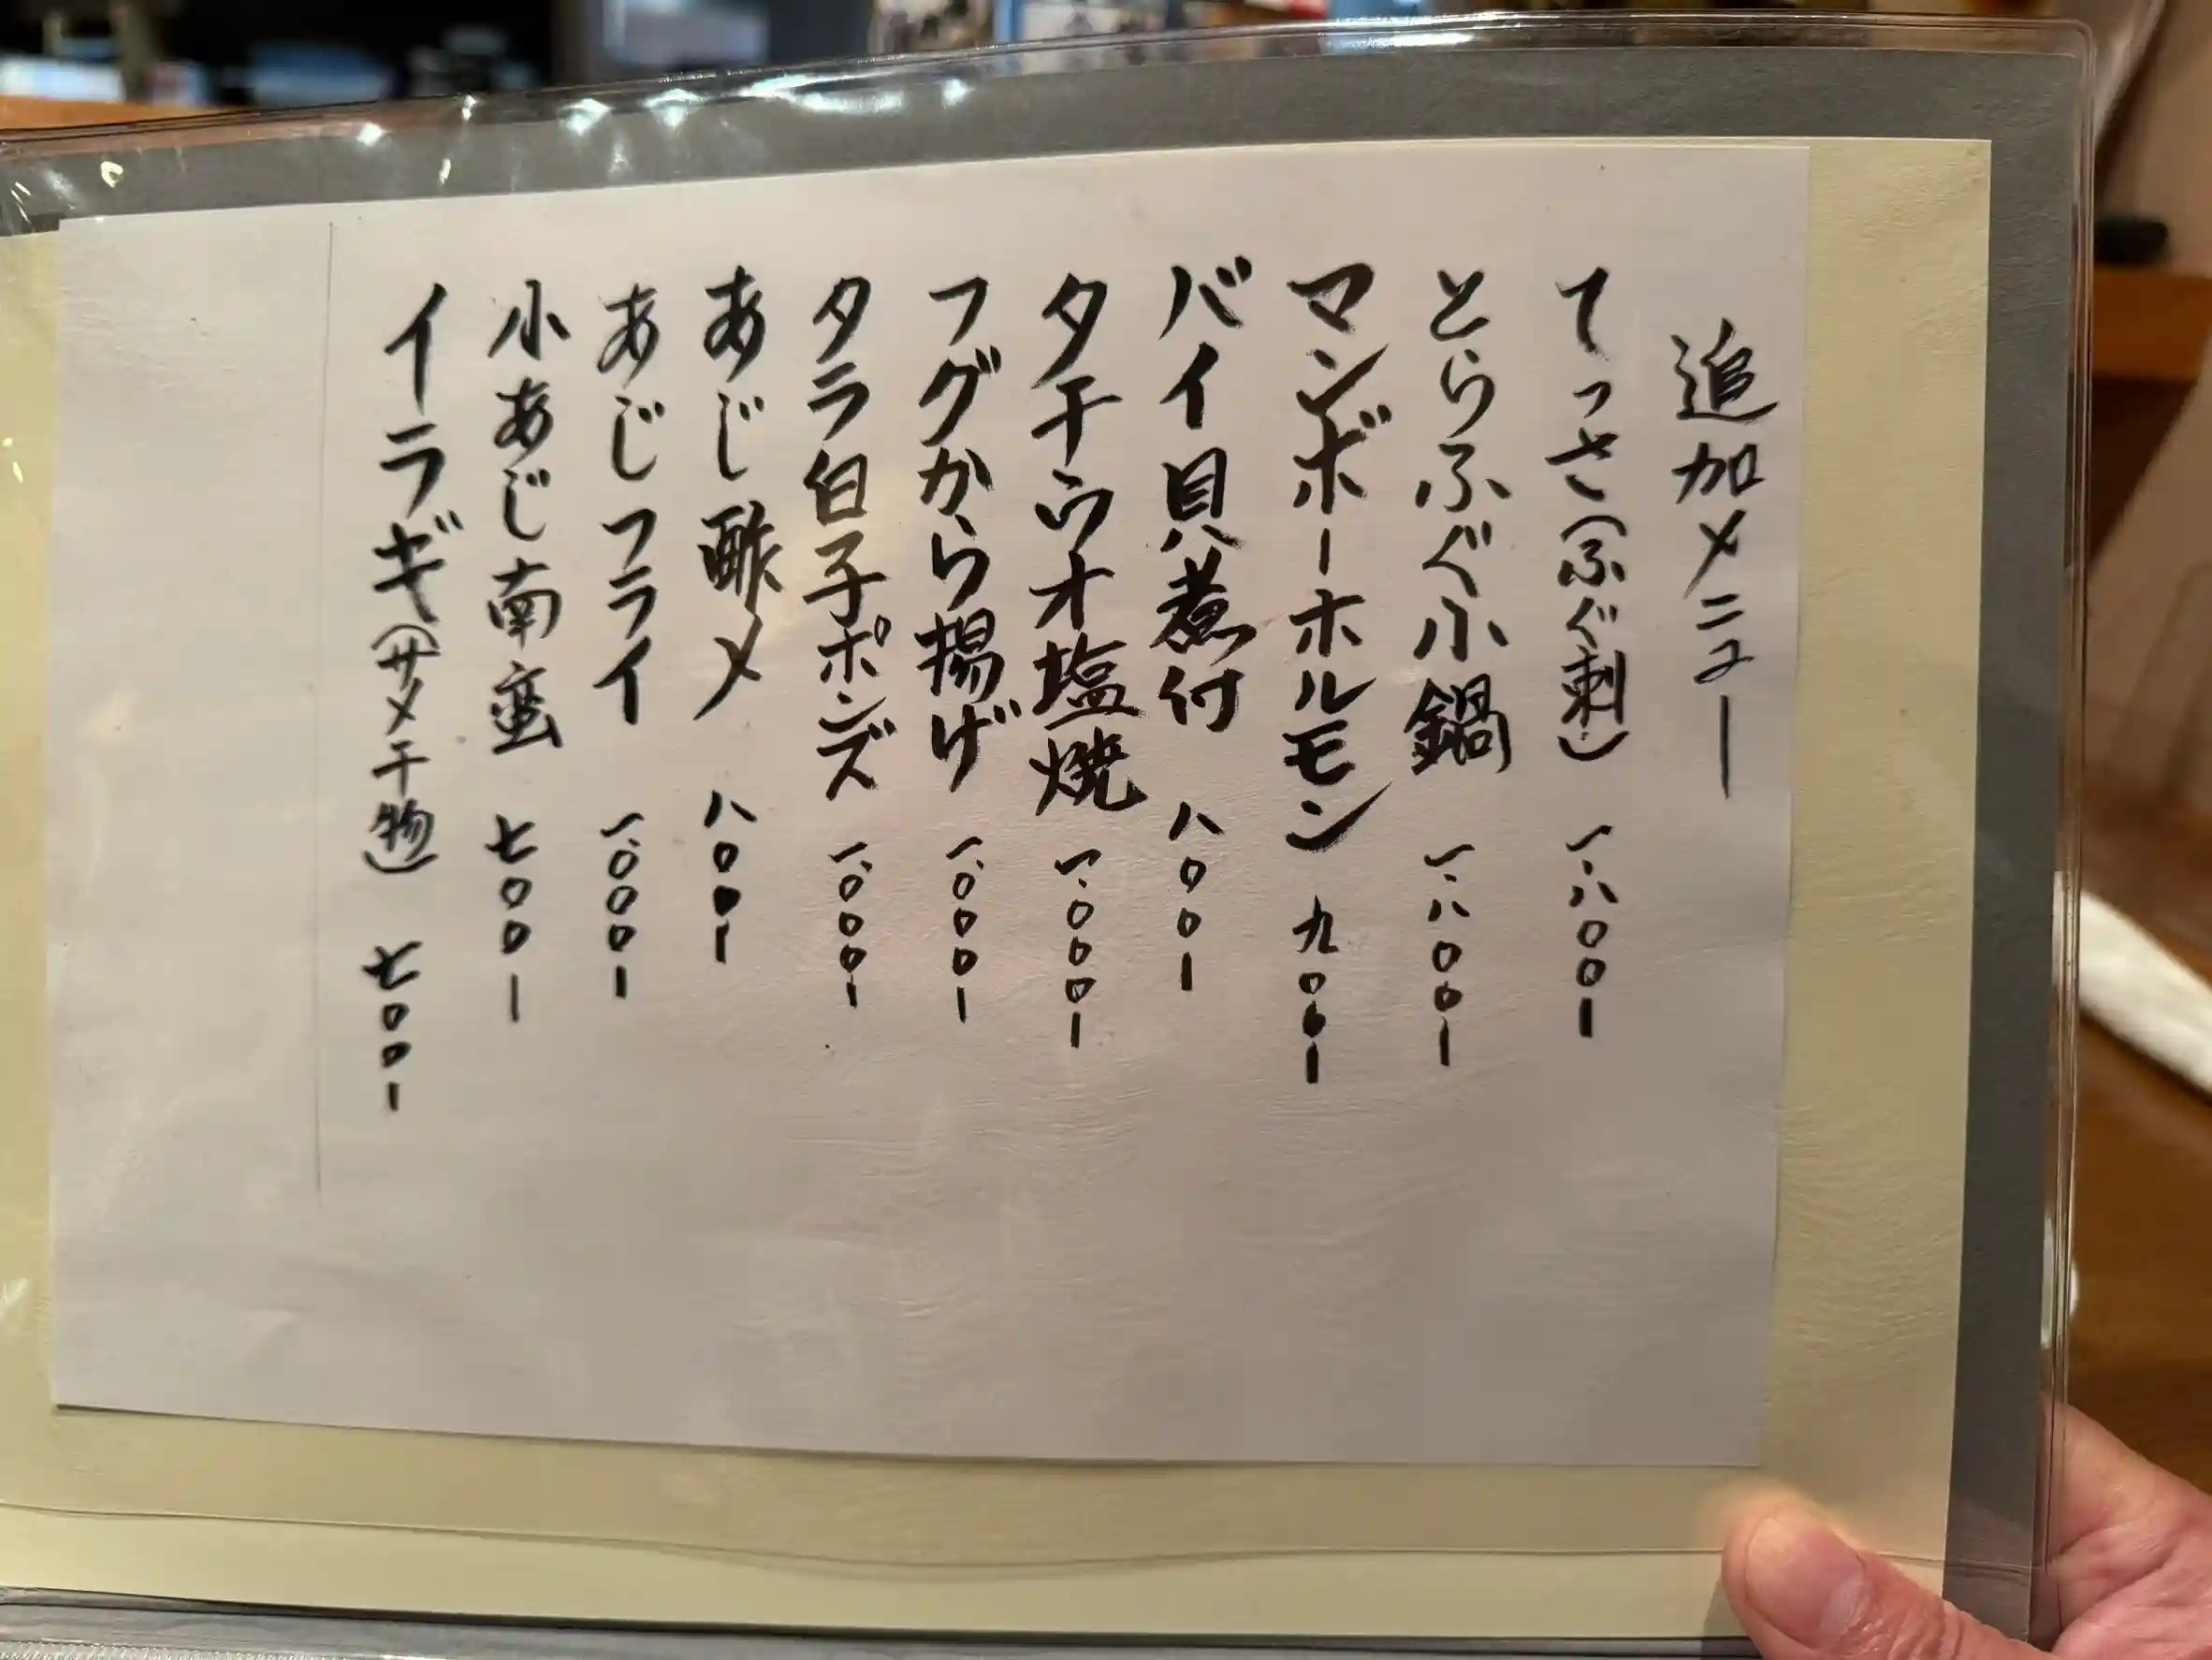 追加メニュー
てっさ(ふぐ刺) 一、八〇〇ー
とらふぐ小鍋 一、八〇〇ー
マンボーホルモン 九〇〇ー
バイ貝煮付 八〇〇ー
タチウオ塩焼 一、〇〇〇ー
フグから揚げ 一、〇〇〇ー
タラ白子ポンズ 一、〇〇〇ー
あじ酢〆 八〇〇ー
あじフライ 一、〇〇〇ー
小あじ南蛮 七〇〇ー
イラギ(サメ干物) 七〇〇ー